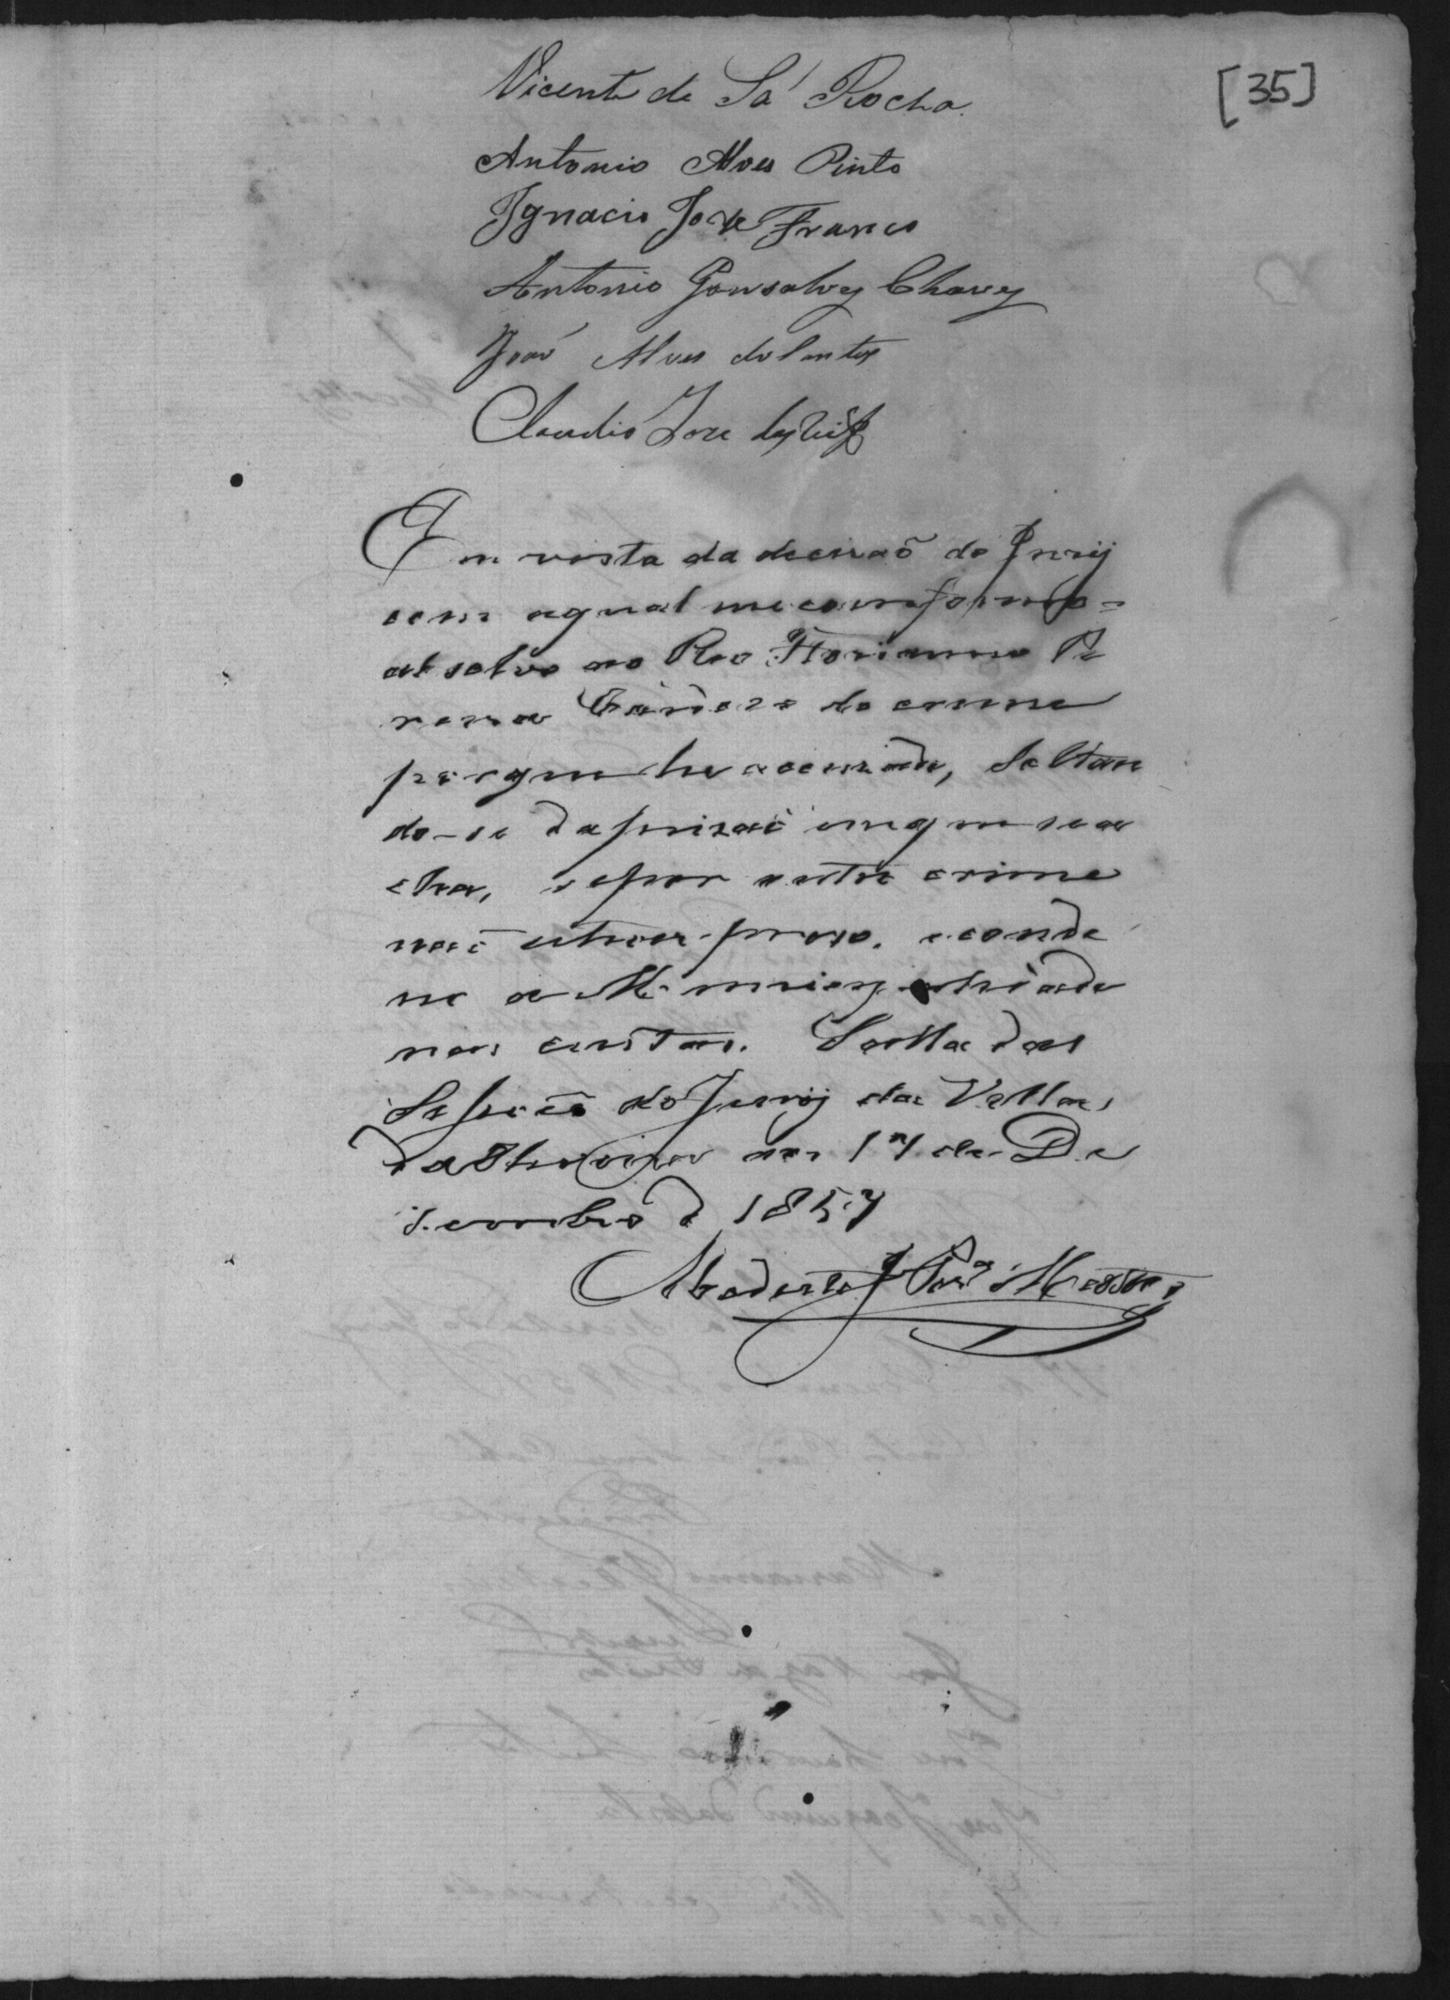 [35]
Vicente de Sá Rocha
Antonio Alves Pinto
Ignacio Jose Franco
Antonio Gonsalvez Chavez
João Alves dos Santos
Claudio Jose
Em vista da decizaõ do Jurij
com aqual meconformo =
absolvo ao Reo Florianno Pe
reira do crime
porque he accuzado, Soltan
do-se daprizaõ emque sea
cha, sepor outro crime
naõ estiver prezo. econde
no a Municipalidade
nas custas. Salla das
Sessoẽs do Jurij da Villa
17 de De
zembro de 1857
Modesto